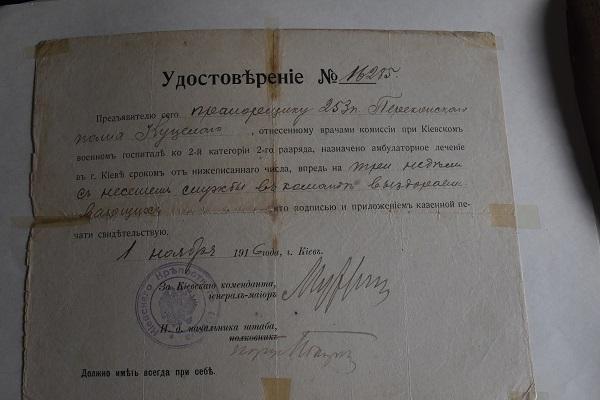 Удостовѣреніе № 16285.
Предъявителю сего прапорщику 253 п. Перекопскаго
полка Куцского, отнесенному врачами комиссіи при Кіевскомъ
военномъ госпиталѣ ко 2-й категоріи 2-го разряда, назначено амбулаторное леченіе
въ г. Кіевѣ срокомъ отъ нижеписаннаго числа, впредь на три недѣли
съ несеніемъ службы въ командѣ выздоравли
вающихъ что подписью и приложеніемъ казенной пе-
чати свидѣтельствую.
1 ноября 1916 года, г. Кіевъ.
За Кіевскаго коменданта,
генералъ-маіоръ
И. д. начальника штаба,
полковникъ
Должно имѣть всегда при себѣ.